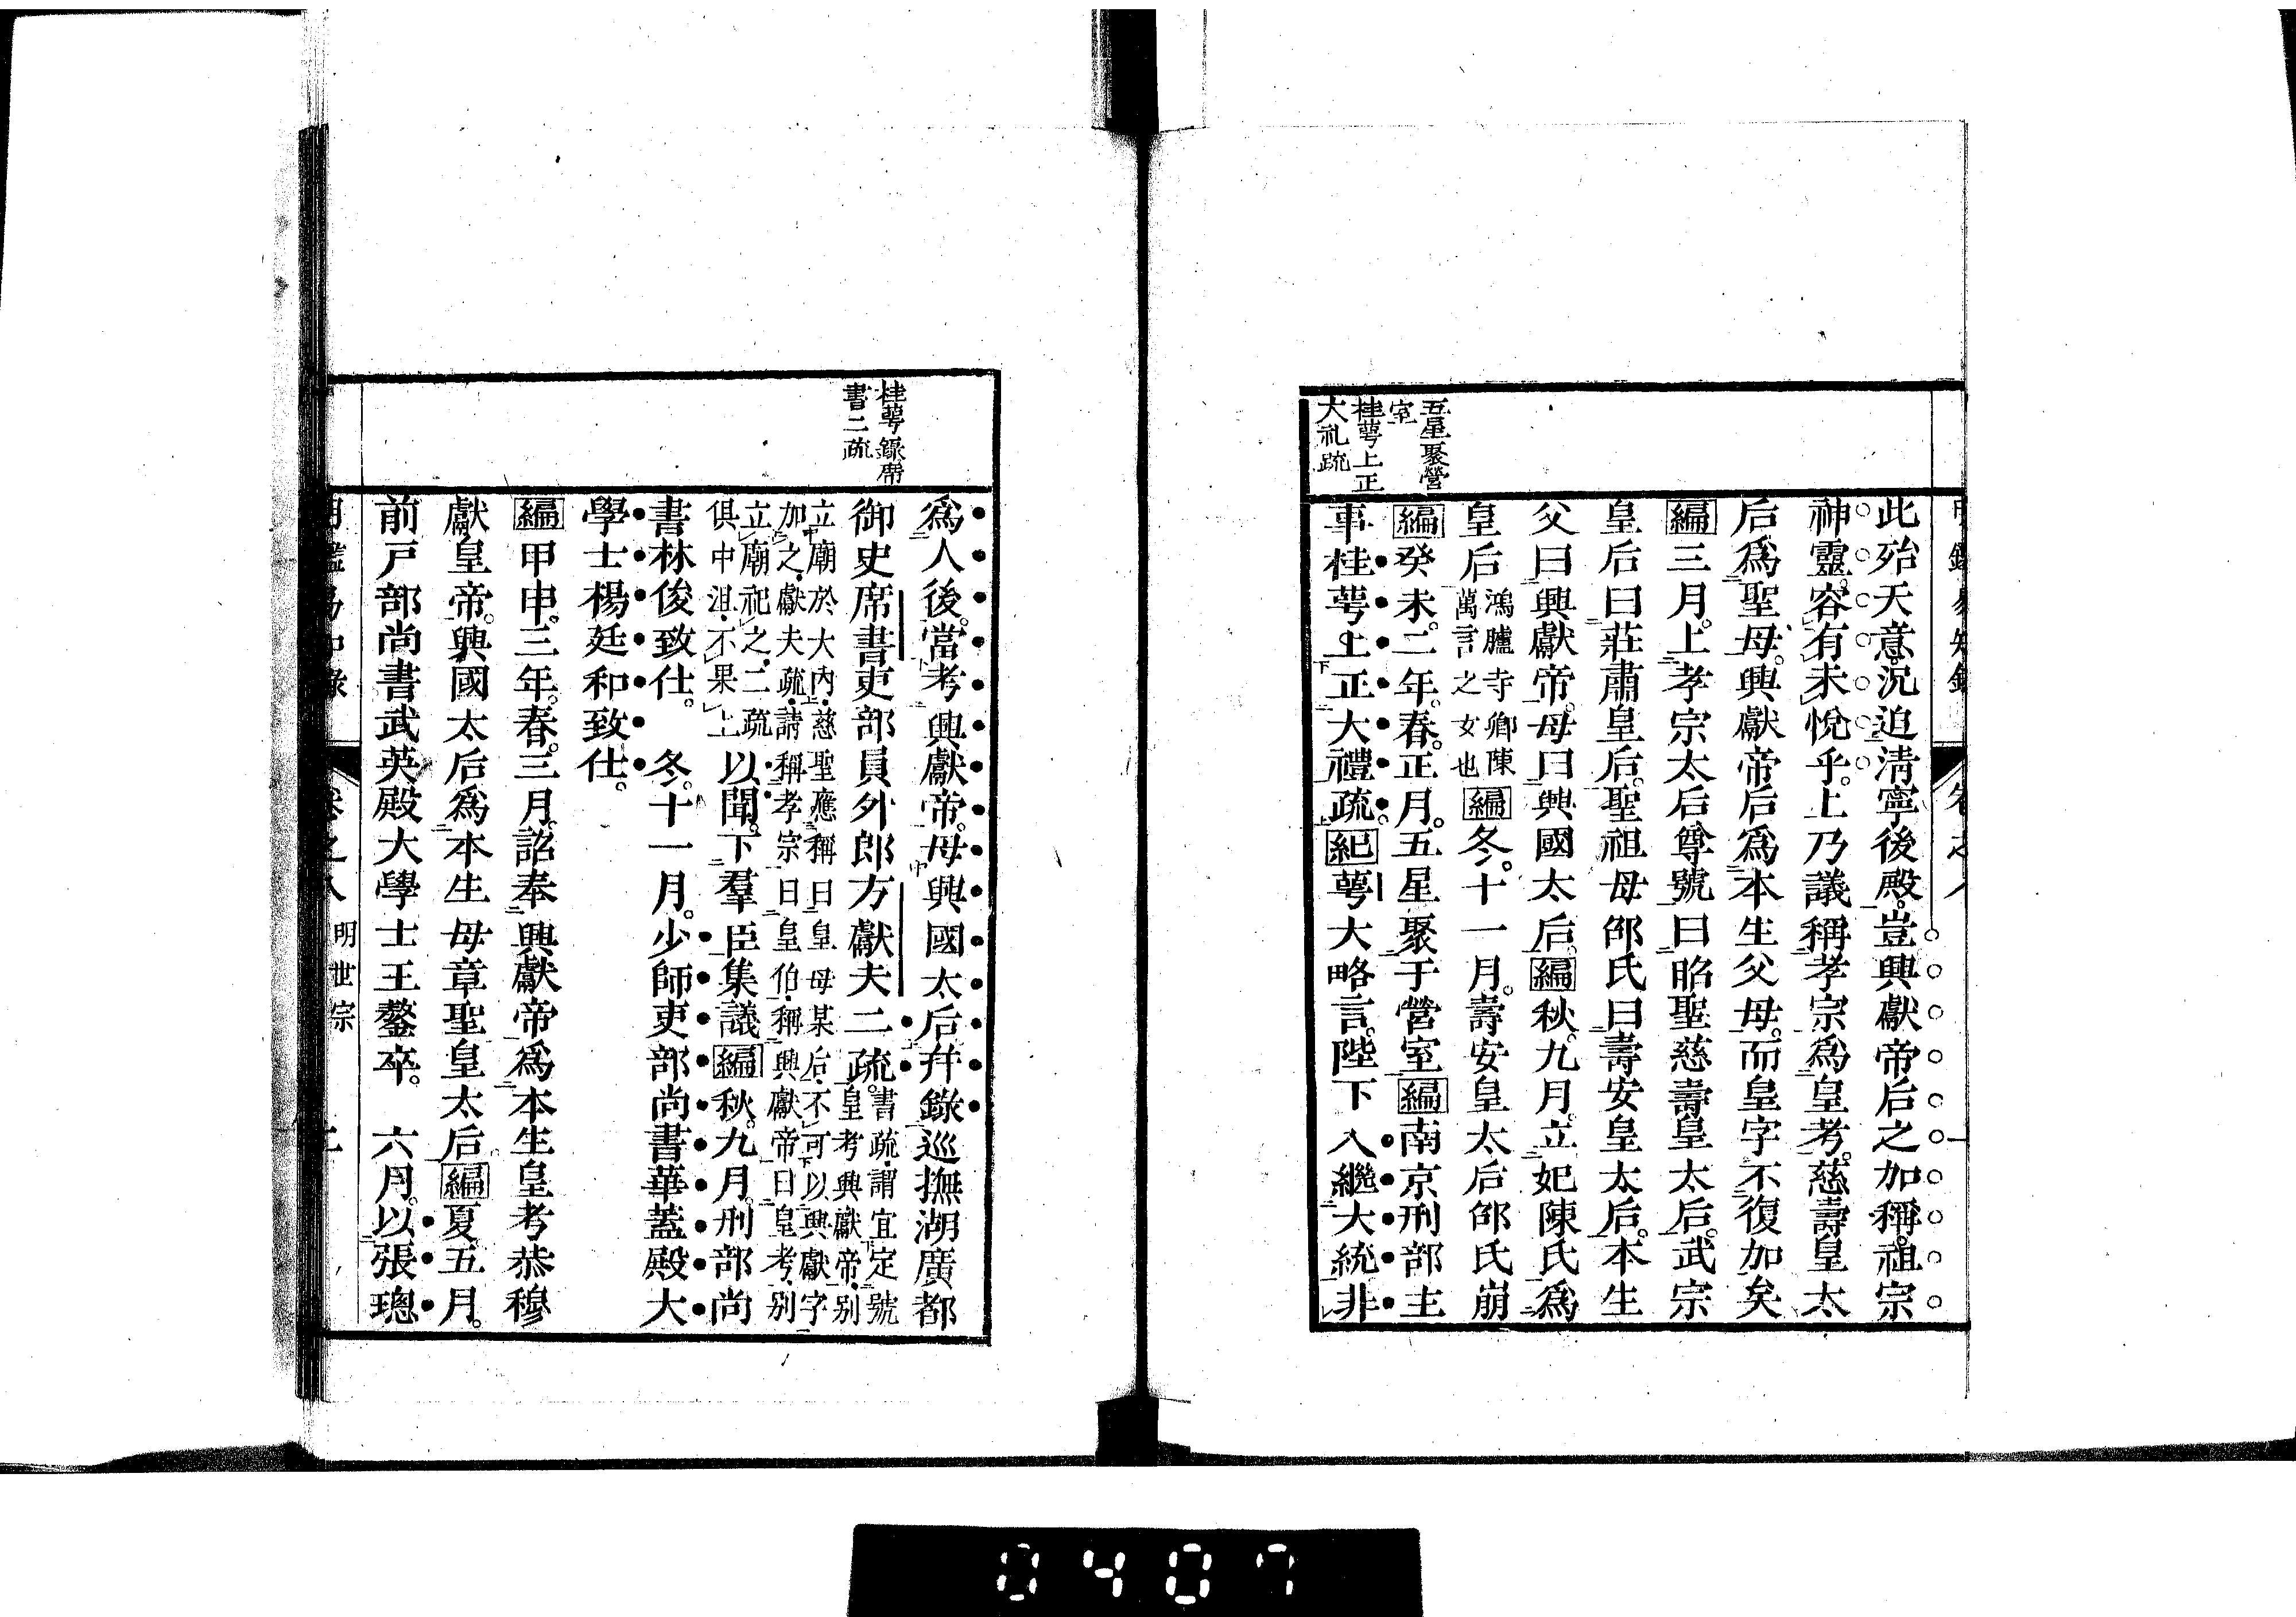 五星聚營
室
桂萼上正
大礼疏
此殆天意。況迫淸寧後殿。豈興獻帝后之加稱。祖宗
神靈。容有未悅乎。上乃議稱孝宗爲皇考。慈壽皇太
后爲聖母。興獻帝后爲本生父母。而皇字不復加矣
編三月。上孝宗太后尊號曰昭聖慈壽皇太后。武宗
皇后曰莊肅皇后。聖祖母邵氏曰壽安皇太后。本生
父曰興獻帝。母曰興國太后。編秋。九月。立妃陳氏爲
皇后鴻臚寺卿陳萬言之女也編冬。十一月。壽安皇太后邵氏崩
編癸未。二年。春。正月。五星聚于營室編南京刑部主
事桂萼上正大禮疏。紀萼大略言。陛下入繼大統非
桂萼錄席
書二疏
爲人後。當考興獻帝。母興國太后幷錄巡撫湖廣都
御史席書吏部員外郎方獻夫二疏。書疏謂宜定號皇考興獻帝別
立廟於大內慈聖應稱曰皇母某后不可以興獻字
加之獻夫疏請稱孝宗曰皇伯稱興獻帝曰皇考別
立廟祀之二疏俱中沮不果上以聞。下羣臣集議編秋。九月。刑部尚
書林俊致仕。冬。十一月。少師吏部尚書華蓋殿大
學士楊廷和致仕。
編甲申。三年。春。三月。詔奉興獻帝爲本生皇考恭穆
獻皇帝。興國太后爲本生母章聖皇太后編夏。五月。
前戶部尚書武英殿大學士王鏊卒。六月。以張璁
明世宗
0407